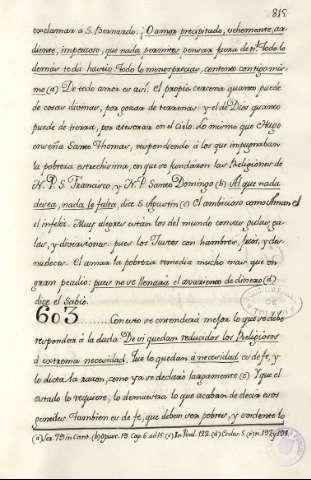 815
exclamar a S. Bernardo. ¡O amor precipitado, vehemente, ar-
diente, impetuoso, que nada permites pensar fuera de ti! Todo lo
demás te da hastío. Todo lo menosprecias, contento contigo mis-
mo (a) De todo amor es así. El propio cercena quanto puede
de cosas divinas, por gozar de terrenas: y el de Dios quanto
puede de tierra, por atesorar en el cielo. Lo mismo que Hugo
enseña Santo Thomas, respondiendo á los que impugnaban
la pobreza estrechisima, en que se fundaron las Religiones de
N. P. S. Francisco, y N. P. Santo Domingo (b) Al que nada
desea, nada le falta, dice S. Agustin (c) El ambicioso
el infeliz. Mas alegres están los del mundo con sus gulas, ga-
las, y diversiones: pues los Justos con hambres, frios, y des-
nudeces. El amar la pobreza remedia mucho mas que un
gran peculio: pues no se llenará el avariento de dinero (d)
dice el Sabio.
603 Con esto se entenderá mejor lo que se debe
responder á la duda: De si quedan reducidos los Religiosos
á extrema necesidad. Que lo quedan á necesidad es de fe, y
lo dicta la razon, como ya se declaró largamente (e) Y que el
estado lo requiere, lo demuestra lo que acaban de decir estos
Tambien es de fe, que deben ser pobres, y
(a) Ser. 79 in Cant. (b) Opusc. 19. Cap. 6. ad 15. (c) In Psal. 122. (d) Eccles. 5. (e) n. 192 y 193.